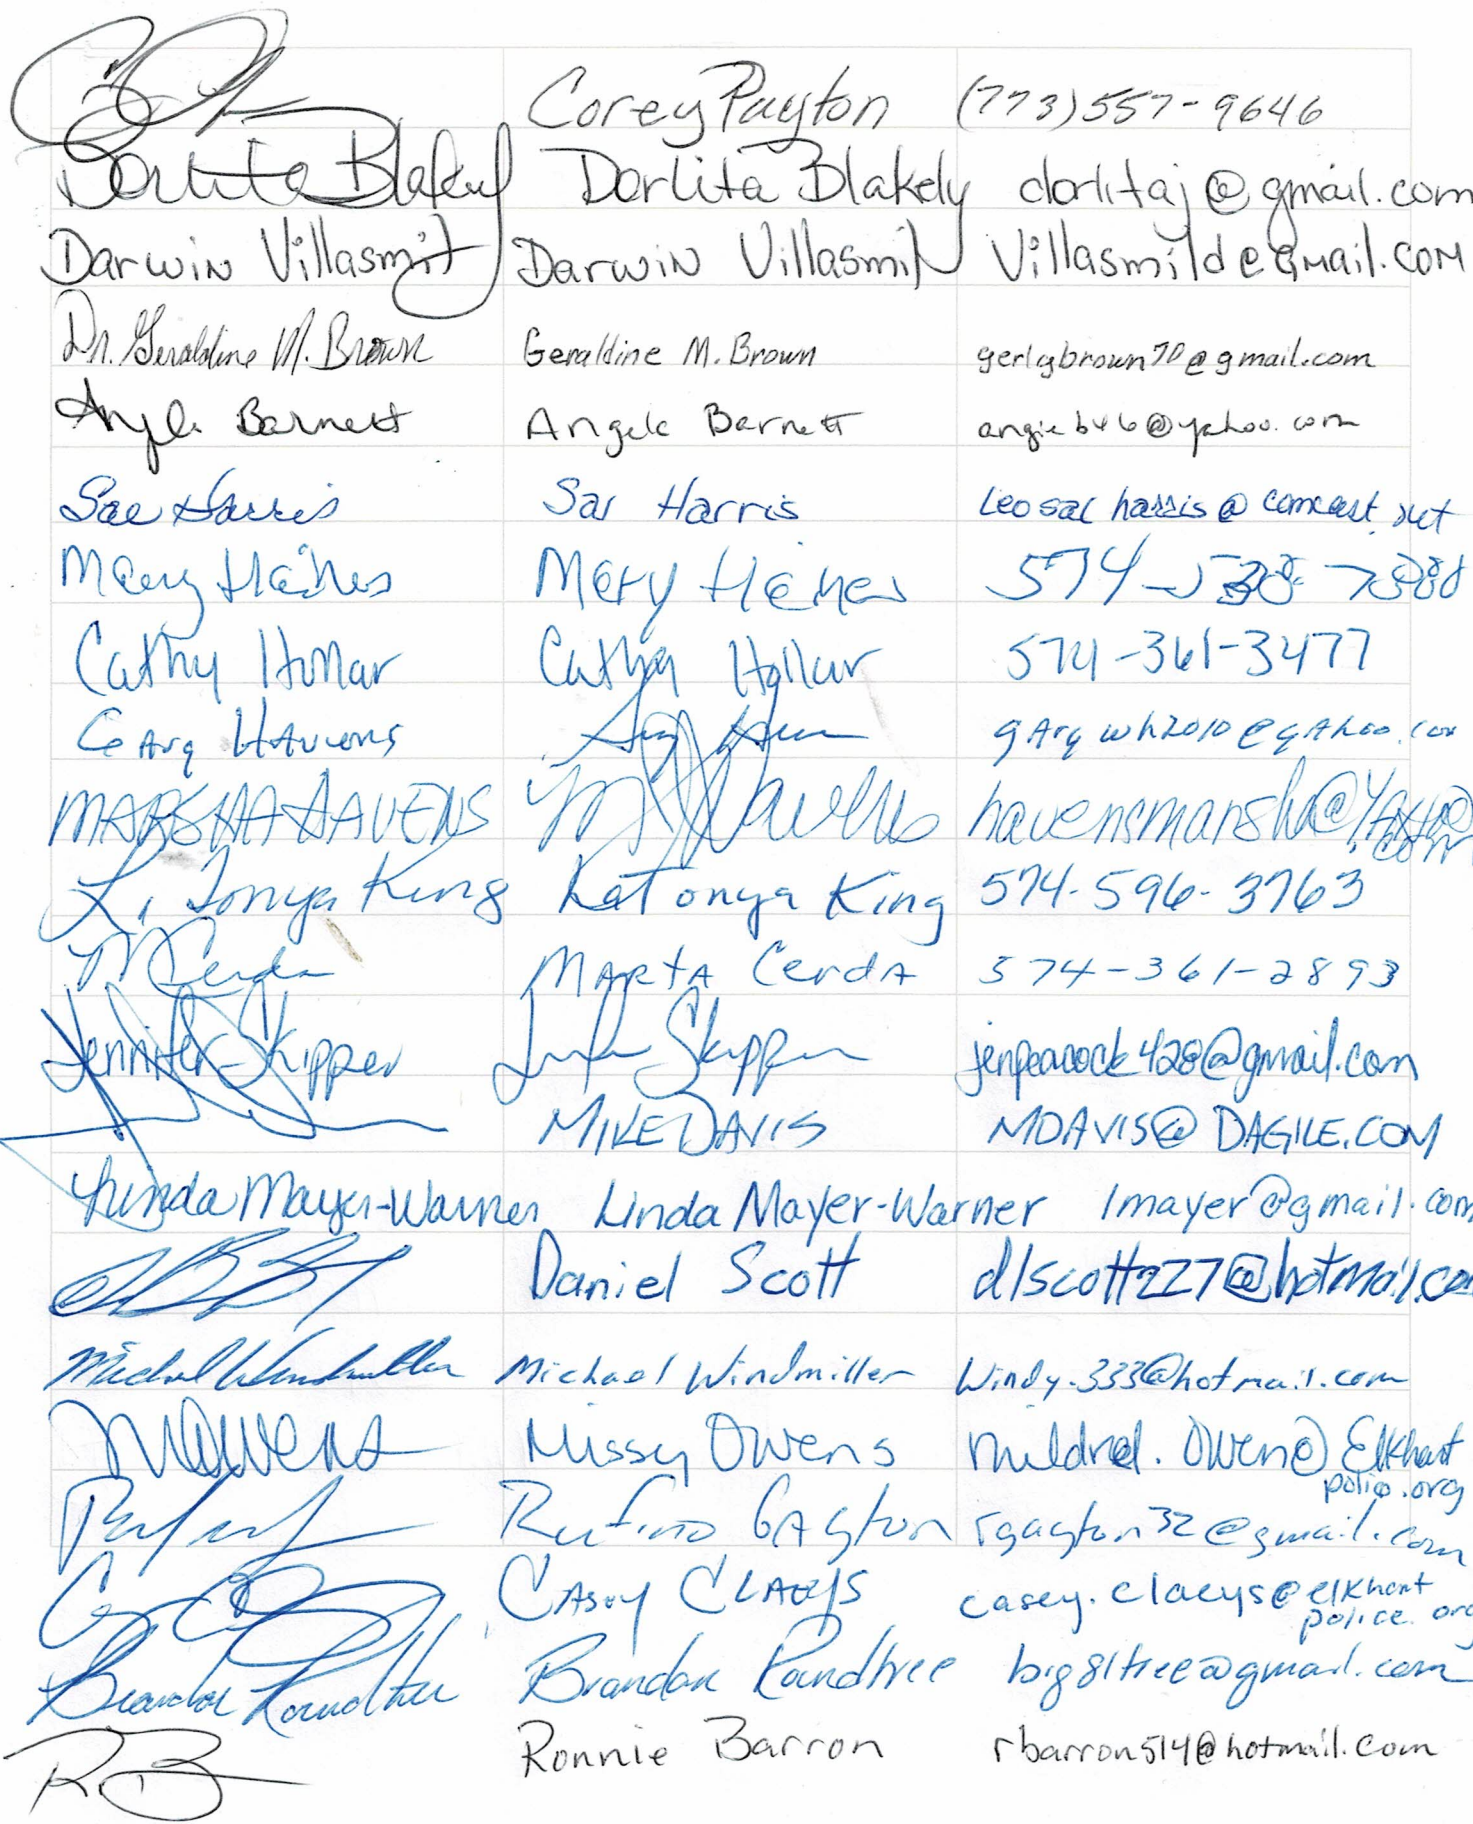 Corey Payton (773)557-9646
Dorlita Blakely Dorlita Blakely dorlitaj@gmail.com
Darwin Villasmil Darwin Villasmil Villasmild@gmail.com
Dr. Geraldine M. Brown Geraldine M. Brown gerlgbrown70@gmail.com
Angela Barnett Angela Barnett angieb46@yahoo.com
Sae Harris Sae Harris leosaeharris@comcast.net
Mary Haines Mary Haines 574-
Cathy Hollar Cathy Hollar 574-361-3477
Gary Havens garywh2010@yahoo.com
MARSHA HAVENS M Havens havensmarsha@Yahoo.com
L. Tonya King LaTonya King 574-596-3763
M Cerda MARTA CerdA 574-361-2893
Jennifer Skipper Jennifer Skipper jenpeacock428@gmail.com
MIKE DAVIS MDAVIS@DAGILE.COM
Linda Mayer-Warner Linda Mayer-Warner lmayer@gmail.com
Daniel Scott dlscott227@hotmail.com
Michael Windmiller Michael Windmiller Windy.333@hotmail.com
MOwens Missy Owens mildred.owen@Elkhart
police.org
Rufino Gayton rgayton32@gmail.com
Casey CLAEYS casey.claeys@elkhart
police.org
Brandon Roundtree Brandon Roundtree big81tree@gmail.com
Ronnie Barron rbarron514@hotmail.com